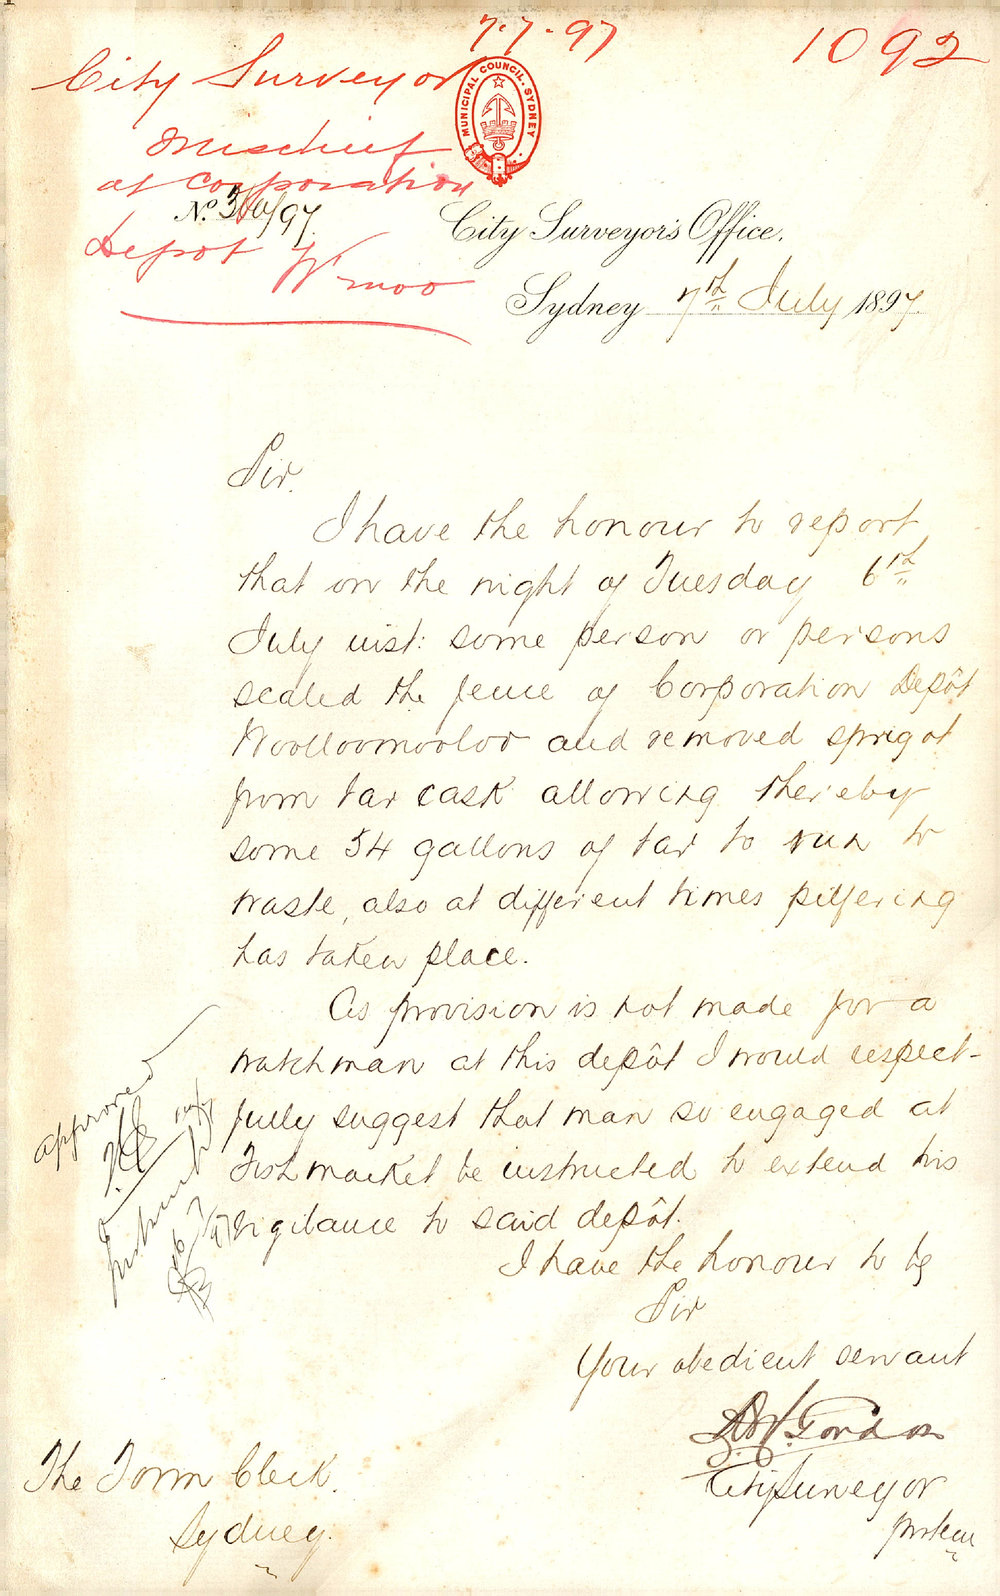 7.7.97
1092
City Surveyor
MUNICIPAL COUNCIL. SYDNEY
Mischief
at Corporation
No. 360/97
Depot W'moo
City Surveyor's Office.
Sydney 7th July 1897.
Sir.
I have the honour to report
that on the night of Tuesday 6th
July inst: some person or persons
scaled the fence of Corporation Depôt
Woolloomooloo and removed sprigot
from tar cask allowing thereby
some 54 gallons of tar to run to
waste, also at different times pilfering
has taken place.
As provision is not made for a
watchman at this depôt I would respect-
fully suggest that man so engaged at
Fish market be instructed to extend his
vigilance to said depôt.
I have the honour to be
Sir
Your obedient servant
Gordon
City Surveyor
pro tem
approved
The Town Clerk.
Sydney.